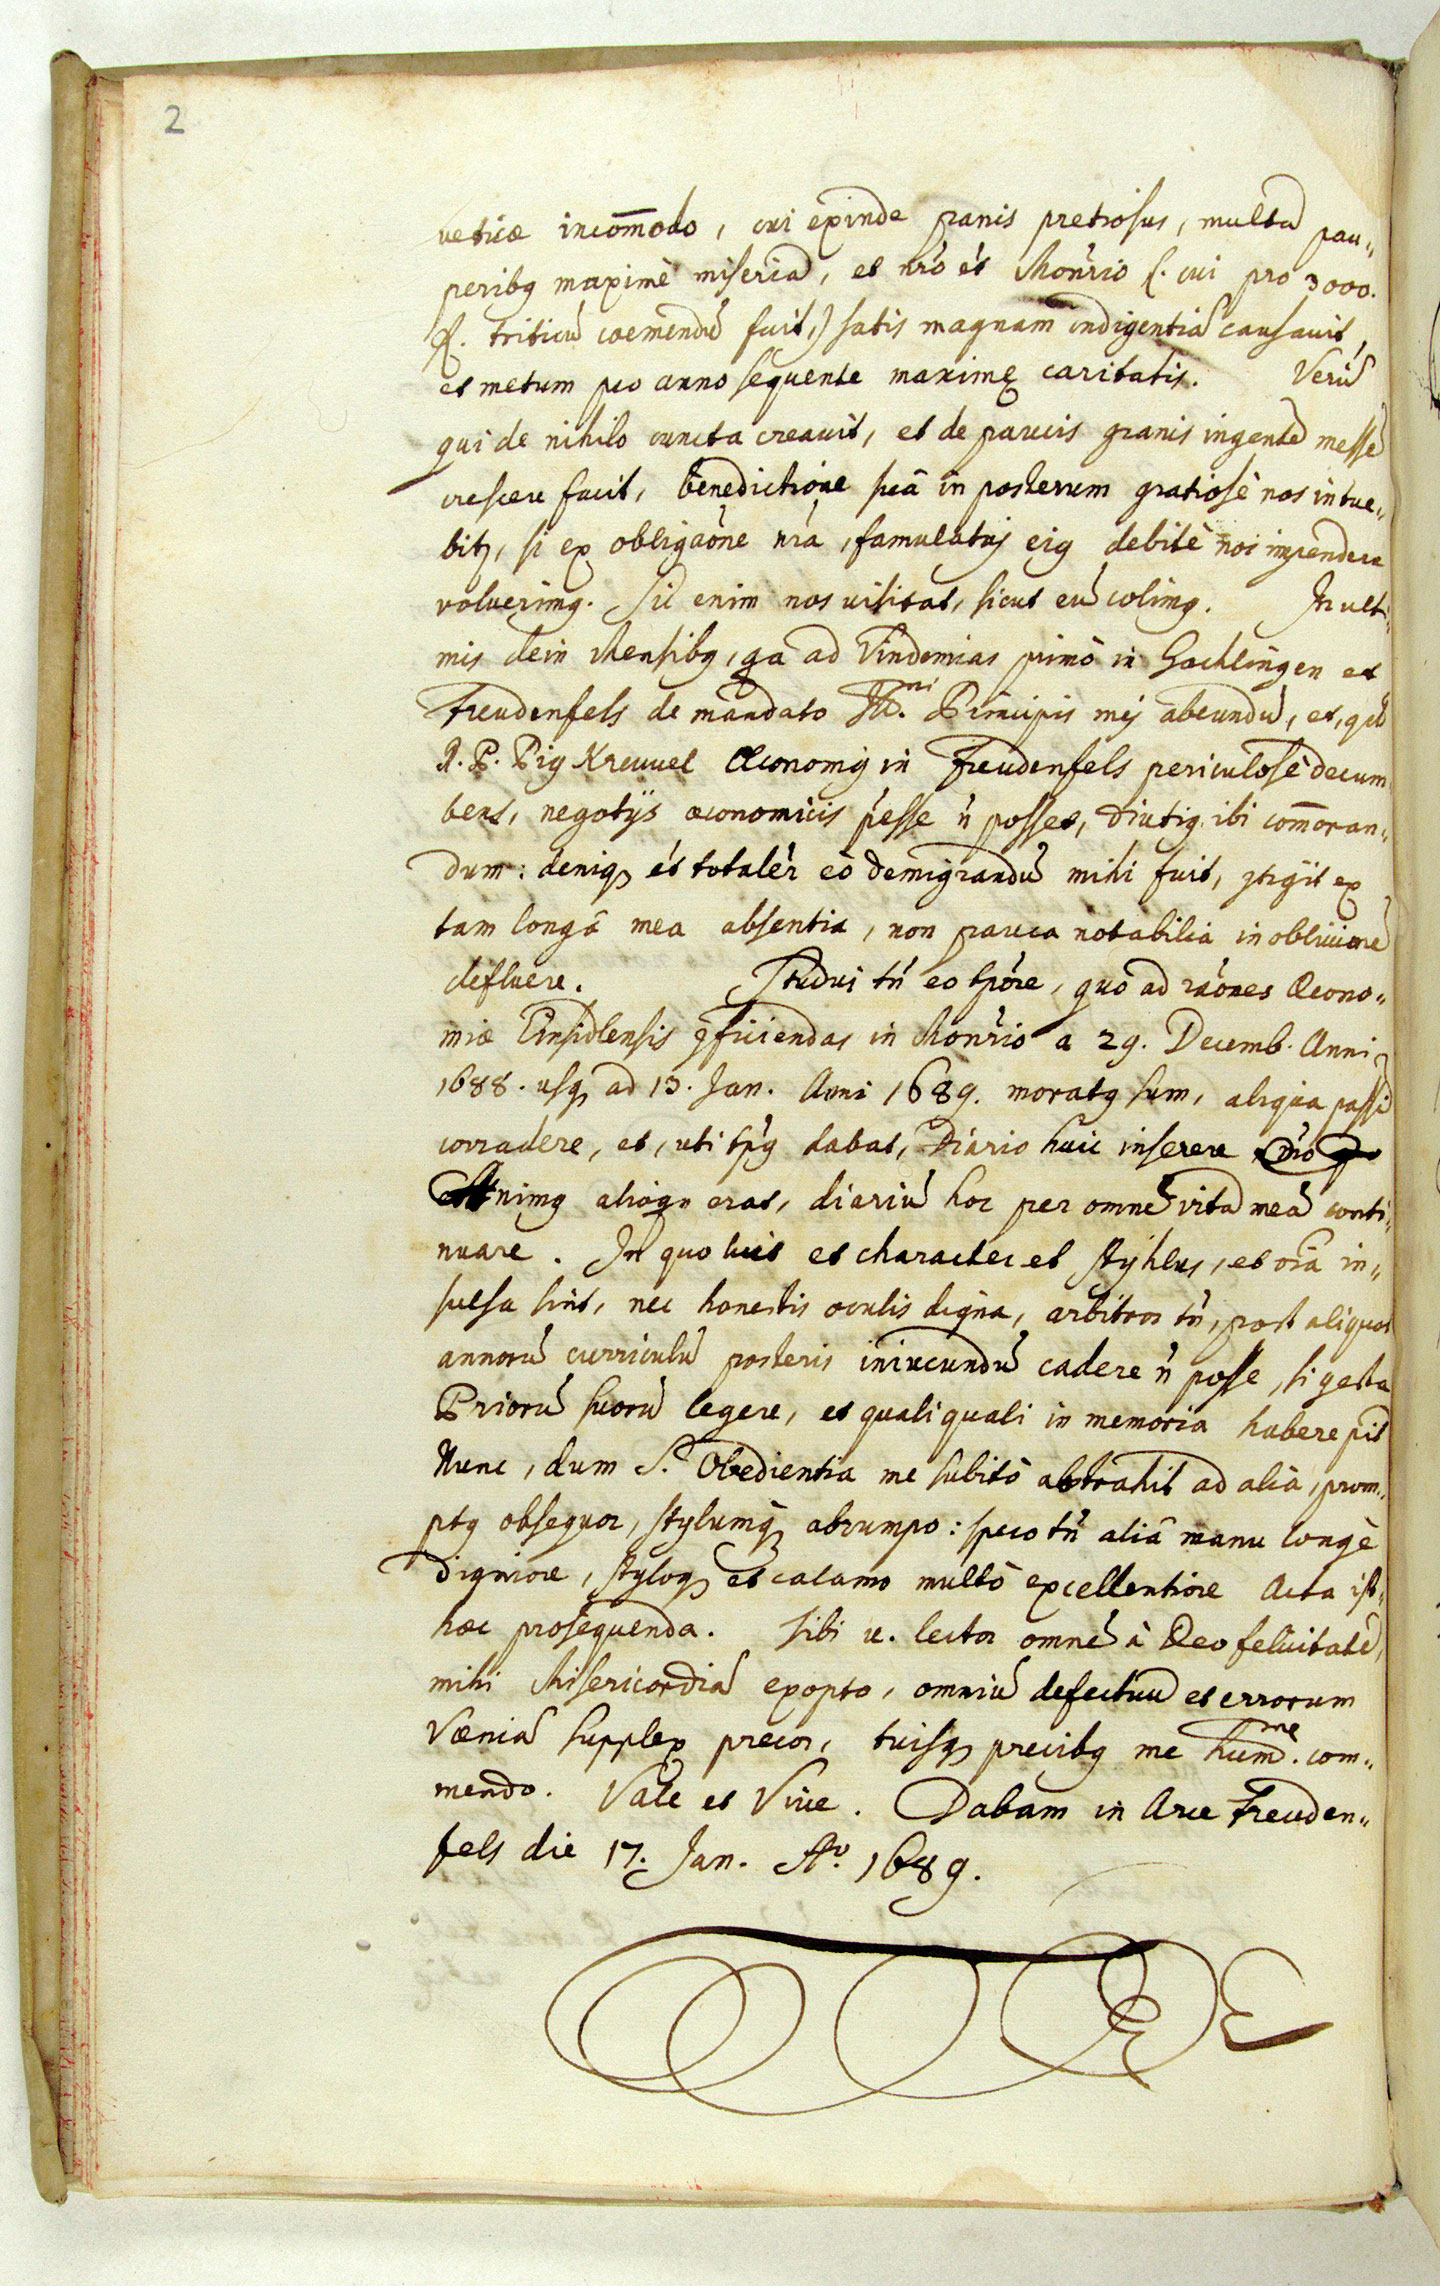 2
veticæ incom̄odo, cui exinde panis pretiosus, multã pau„
peribꝫ maximè miseriã, et nr̃o et̃ Monr̃io (. cui pro 3000.
fl. triticũ coemendũ fuit,) satis magnam indigentiã causavit,
et metum pro anno sequente maximę caritatis. Verũ
qui de nihilo cuncta creavit, et de paucis granis ingentẽ messẽ
crescere facit, benedictione suâ in posterum gratiosè nos intue„
bitꝫ, si ex obligaõne nr̃a, famulatuj eiꝰ debitè nos impendere
voluerimꝰ. Sic enim nos visitat, sicut eũ colimꝰ. In ulti„
mis dein Mensibꝫ, ga ad Vindemias primò in Gachlingen et
Freudenfels de mandato Ill.mi Principis mej abeundũ, et, qd̃
R. P. Piꝰ Kreuuel Œconomꝰ in Freudenfels periculosè decum„
bens, negotÿs œconomicis p̃esse ñ posset, diutiꝰ ibi com̄oran„
dum: deniqꝫ et̃ totalẽr eò demigrandũ mihi fuit, ꝯtigit ex
tam longâ mea absentia, non pauca notabilia in obliuionẽ
defluere. Studui tñ eo tp̃ore, quo ad rãones Œcono„
miæ Einsidlensis ꝯficiendas in Monr̃io a 29. Decemb. Anni
1688. usqꝫ ad 13. Jan. Anni 1689. moratꝰ sum, aliqua passĩ
corradere, et, uti tp̃ꝰ dabat, Diario huic inserere
animꝰ alioqn erat, diariũ hoc per omnẽ vitã meã conti„
nuare. In quo licet et character et stÿhlus, et oĩa in„
sulsa sint, nec honestis oculis digna, arbitror tñ, post aliquot
annorũ curriculũ posteris iniucundũ cadere ñ posse, si gesta
Priorũ suorũ legere, et quali quali in memoria habere põt
Nunc, dum S. Obedientia me subitò abstrahit ad alia, prom„
ptꝰ obsequor, stylumqꝫ abrumpo: spero tñ aliâ manu longè
digniore, styloqꝫ et calamo multò excellentiore Acta ist„
hæc prosequenda. Tibi v. lector omnẽ à Deo felicitatẽ,
mihi Misericordiã exopto, omniũ defectuũ et errorum
Væniã supplex precor, tuisqꝫ precibꝫ me humẽ. com„
mendo. Vale et Vive. Dabam in Arce Freuden„
fels die 17. Jan. Aº. 1689.